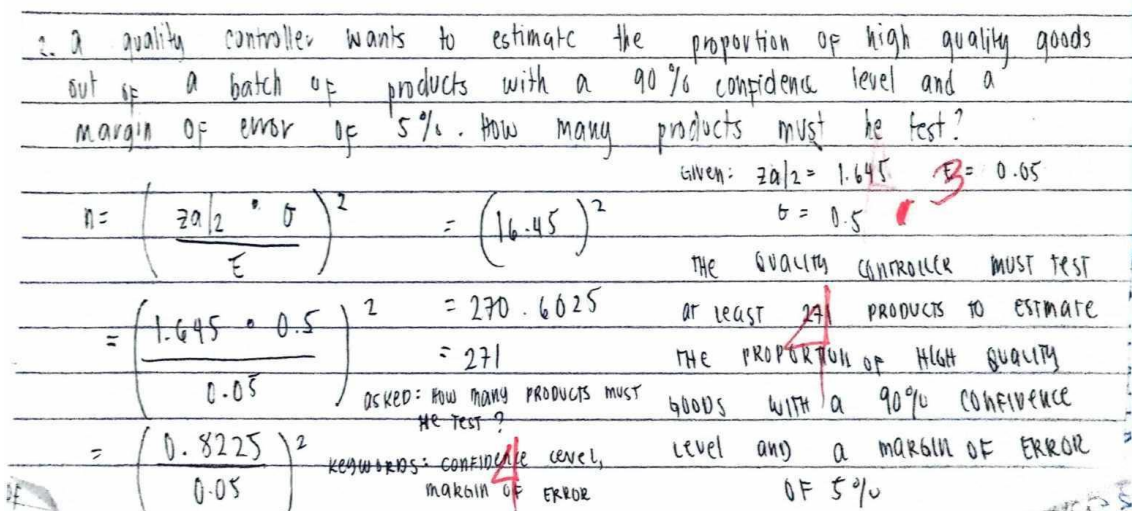 2. a quality controller wants to estimate the proportion of high quality goods
out of a batch of products with a 90% confidence level and a
margin of error of 5%. How many products must he test?
Given: za/2 = 1.645 E = 0.05
σ = 0.5
n = (za/2 • σ / E)²
= (1.645 • 0.5 / 0.05)²
= (0.8225 / 0.05)²
= (16.45)²
= 270.6025
= 271
ASKED: HOW MANY PRODUCTS MUST
HE TEST?
KEYWORDS: CONFIDENCE LEVEL,
MARGIN OF ERROR
THE QUALITY CONTROLLER MUST TEST
AT LEAST 271 PRODUCTS TO ESTIMATE
THE PROPORTION OF HIGH QUALITY
GOODS WITH A 90% CONFIDENCE
LEVEL AND A MARGIN OF ERROR
OF 5%
3
4
4